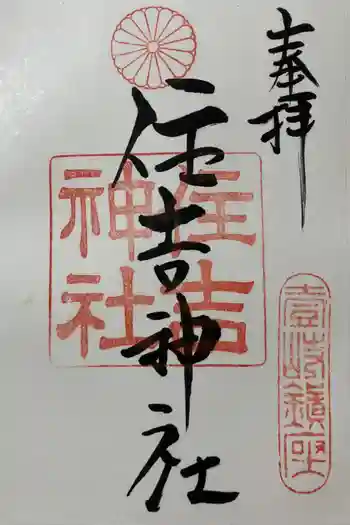 奉拝
住吉神社
住吉
神社
壹岐鎮座